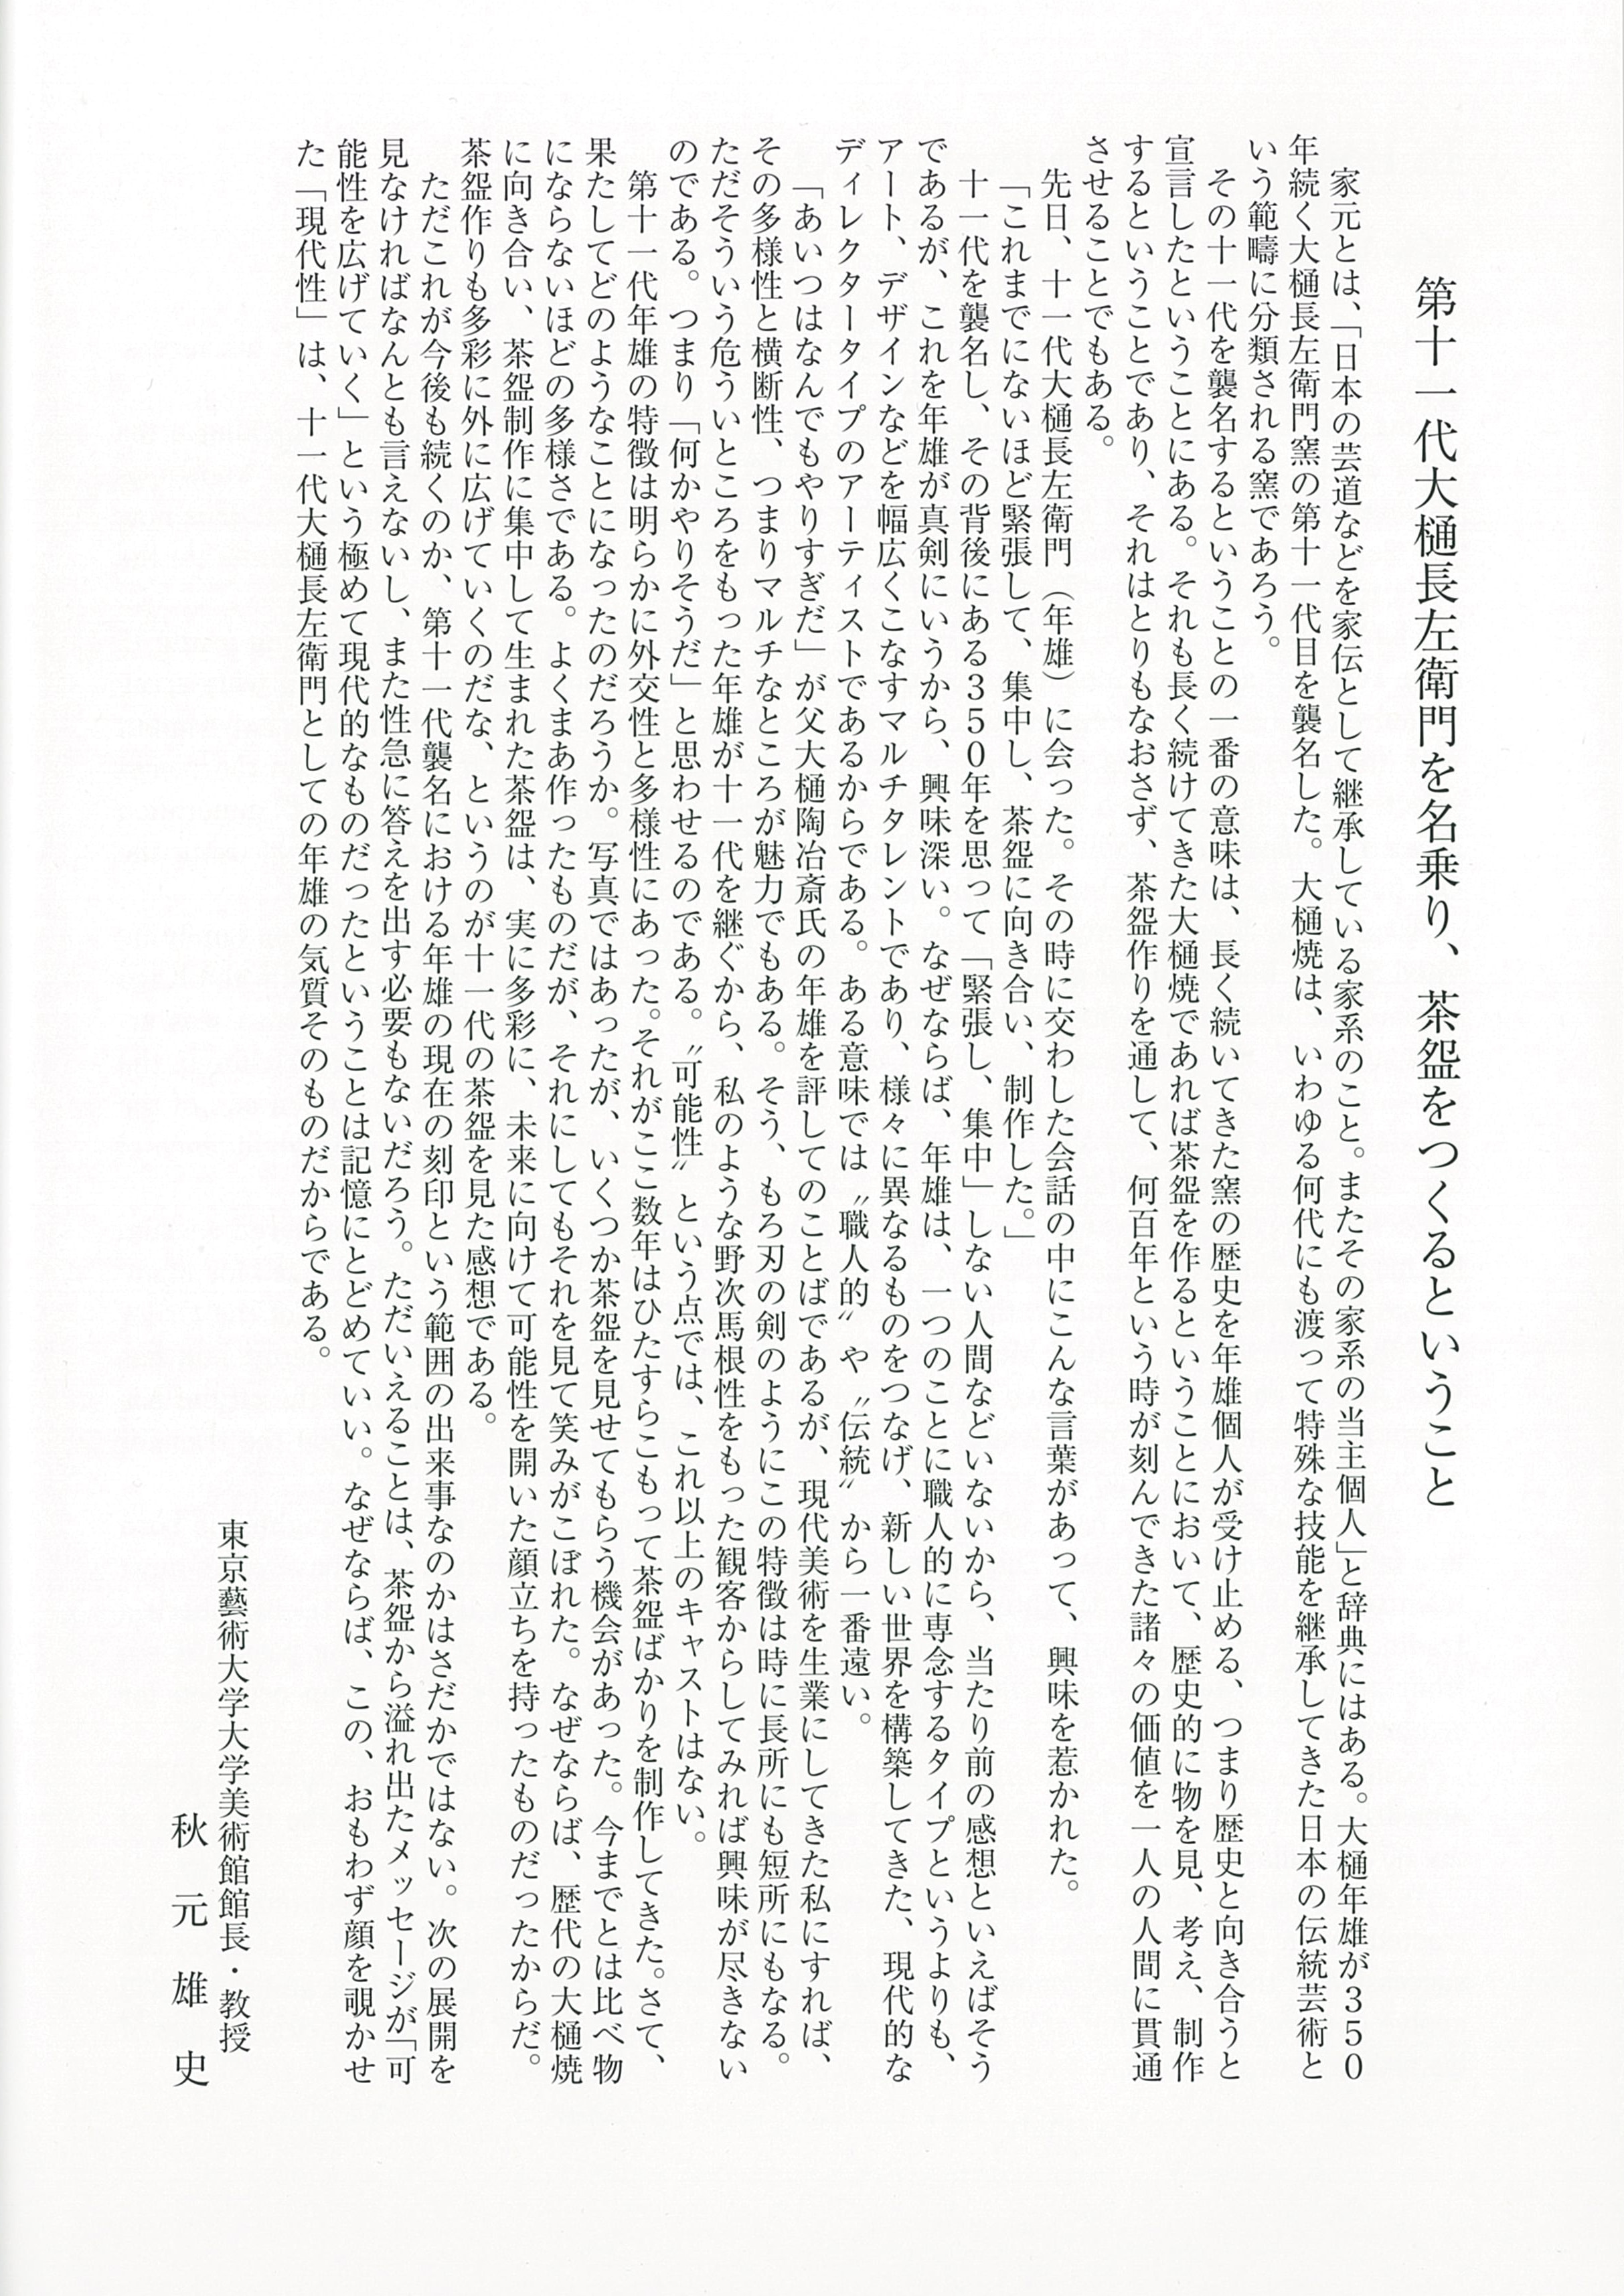 第十一代大樋長左衛門を名乗り、茶盌をつくるということ
家元とは、「日本の芸道などを家伝として継承している家系のこと。またその家系の当主個人」と辞典にはある。大樋年雄が３５０
年続く大樋長左衛門窯の第十一代目を襲名した。大樋焼は、いわゆる何代にも渡って特殊な技能を継承してきた日本の伝統芸術と
いう範疇に分類される窯であろう。
その十一代を襲名するということの一番の意味は、長く続いてきた窯の歴史を年雄個人が受け止める、つまり歴史と向き合うと
宣言したということにある。それも長く続けてきた大樋焼であれば茶盌を作るということにおいて、歴史的に物を見、考え、制作
するということであり、それはとりもなおさず、茶盌作りを通して、何百年という時が刻んできた諸々の価値を一人の人間に貫通
させることでもある。
先日、十一代大樋長左衛門（年雄）に会った。その時に交わした会話の中にこんな言葉があって、興味を惹かれた。
「これまでにないほど緊張して、集中し、茶盌に向き合い、制作した。」
十一代を襲名し、その背後にある３５０年を思って「緊張し、集中」しない人間などいないから、当たり前の感想といえばそう
であるが、これを年雄が真剣にいうから、興味深い。なぜならば、年雄は、一つのことに職人的に専念するタイプというよりも、
アート、デザインなどを幅広くこなすマルチタレントであり、様々に異なるものをつなげ、新しい世界を構築してきた、現代的な
ディレクタータイプのアーティストであるからである。ある意味では〝職人的〟や〝伝統〟から一番遠い。
「あいつはなんでもやりすぎだ」が父大樋陶冶斎氏の年雄を評してのことばであるが、現代美術を生業にしてきた私にすれば、
その多様性と横断性、つまりマルチなところが魅力でもある。そう、もろ刃の剣のようにこの特徴は時に長所にも短所にもなる。
ただそういう危ういところをもった年雄が十一代を継ぐから、私のような野次馬根性をもった観客からしてみれば興味が尽きない
のである。つまり「何かやりそうだ」と思わせるのである。〝可能性〟という点では、これ以上のキャストはない。
第十一代年雄の特徴は明らかに外交性と多様性にあった。それがここ数年はひたすらこもって茶盌ばかりを制作してきた。さて、
果たしてどのようなことになったのだろうか。写真ではあったが、いくつか茶盌を見せてもらう機会があった。今までとは比べ物
にならないほどの多様さである。よくまあ作ったものだが、それにしてもそれを見て笑みがこぼれた。なぜならば、歴代の大樋焼
に向き合い、茶盌制作に集中して生まれた茶盌は、実に多彩に、未来に向けて可能性を開いた顔立ちを持ったものだったからだ。
茶盌作りも多彩に外に広げていくのだな、というのが十一代の茶盌を見た感想である。
ただこれが今後も続くのか、第十一代襲名における年雄の現在の刻印という範囲の出来事なのかはさだかではない。次の展開を
見なければなんとも言えないし、また性急に答えを出す必要もないだろう。ただいえることは、茶盌から溢れ出たメッセージが「可
能性を広げていく」という極めて現代的なものだったということは記憶にとどめていい。なぜならば、この、おもわず顔を覗かせ
た「現代性」は、十一代大樋長左衛門としての年雄の気質そのものだからである。
東京藝術大学大学美術館館長・教授
秋元雄史